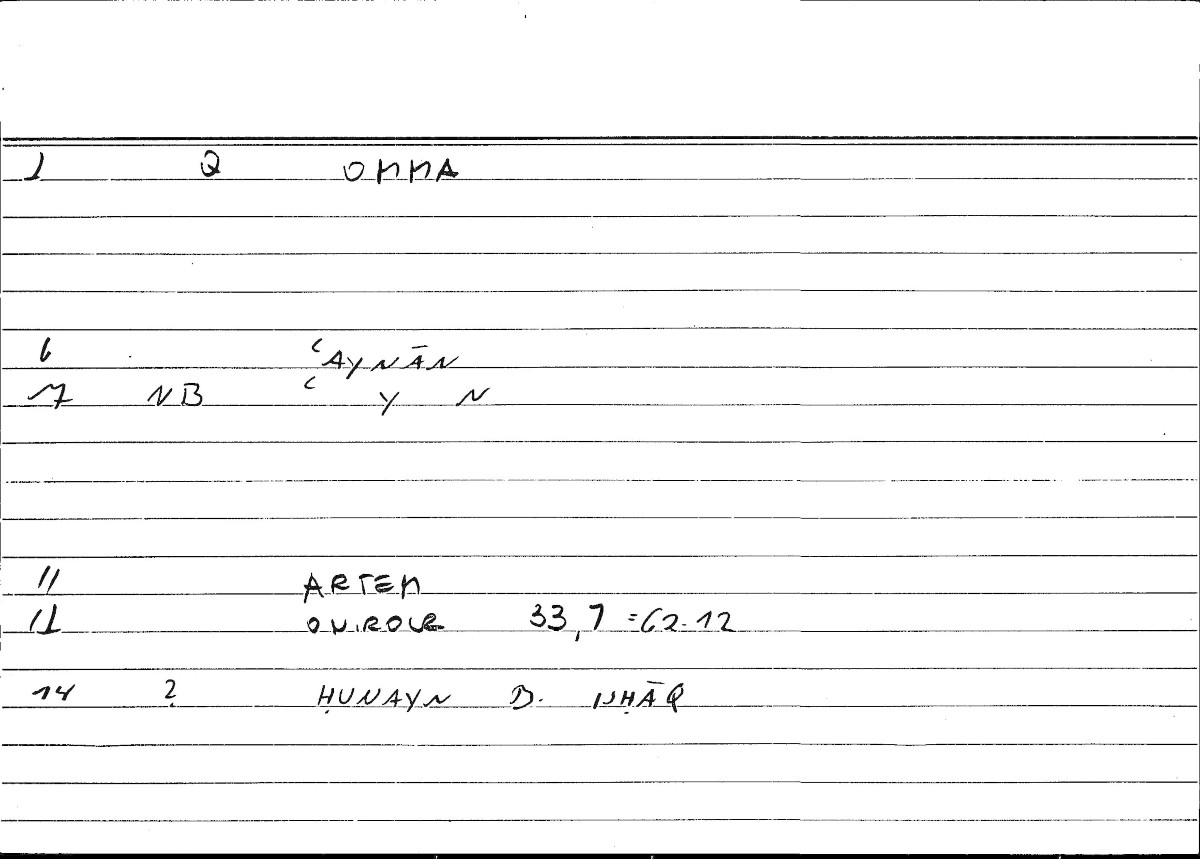 1 Q OMMA
6 ʿAYNĀN
7 NB ʿ Y N
11 ARTEM
12 ONIROCR 33,7 = 62.12
14 ? ḤUNAYN B. ISḤĀQ